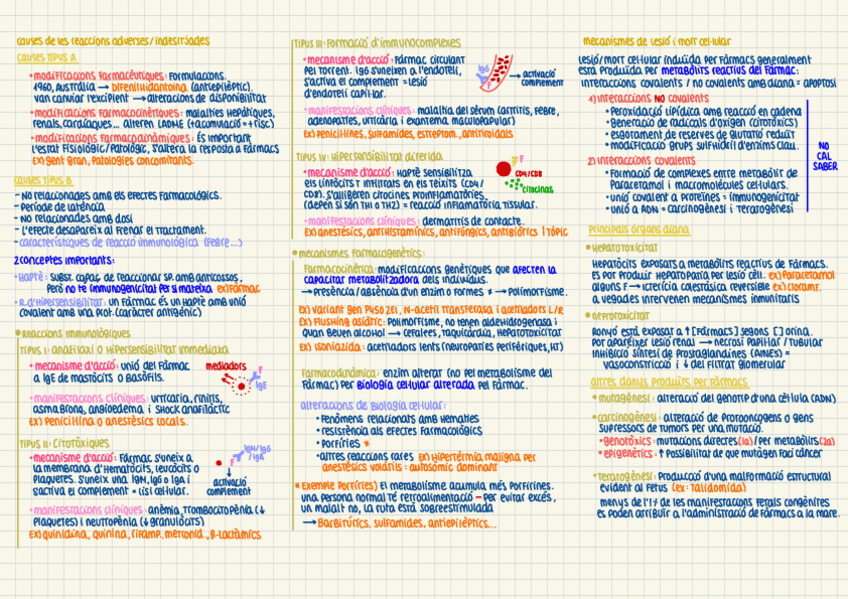 causes de les reaccions adverses/indesitjades
causes tipus A
• modificacions farmacèutiques: Formulacions.
1960, Austràlia → Difenilhidantoïna (antiepilèptic).
van canviar l'excipient → alteracions de disponibilitat
• modificacions farmacocinètiques: malalties hepàtiques,
renals, cardíaques... alteren LADME (↑acumulació=+risc)
• modificacions farmacodinàmiques: És important
l'estat fisiològic/patològic, s'altera la resposta a fàrmacs
Ex) gent gran, patologies concomitants.
causes tipus B
- No relacionades amb els efectes farmacològics.
- Període de latència
- No relacionades amb dosi
- L'efecte desapareix al frenar el tractament.
- característiques de reacció immunològica (febre...)
2 conceptes importants:
• Haptè: subst. capaç de reaccionar sp. amb anticossos,
però no té immunogenicitat per si mateixa ex) fàrmac
• R. d'Hipersensibilitat: un fàrmac és un haptè amb unió
covalent amb una prot. (caràcter antigènic)
• Reaccions immunològiques
Tipus I: anafilaxi o hipersensibilitat immediata
• mecanisme d'acció: unió del fàrmac
a IgE de mastòcits o basòfils.
mediadors
F
IgE
• manifestacions clíniques: urticària, rinitis,
asma bronq, angioedema i shock anafilàctic
Ex) Penicil·lina o anestèsics locals.
Tipus II: Citotòxiques
• mecanisme d'acció: Fàrmac s'uneix a
la membrana d'hematòcits, leucòcits o
plaquetes. S'uneix una IgM, IgG o IgA i
s'activa el complement = lisi cel·lular.
IgM/IgG
/IgA
F
activació
complement
• manifestacions clíniques: anèmia, trombocitopènia (↓
plaquetes) i neutropènia (↓granulòcits)
Ex) quinidina, quinina, rifamp, metronid., B-lactàmics
Tipus III: Formació d'immunocomplexes
• mecanisme d'acció: Fàrmac circulant
pel torrent. IgG s'uneixen a l'endoteli,
s'activa el complement = lesió
d'endoteli capil·lar.
IgG
F
→ activació
complement
• manifestacions clíniques: malaltia del sèrum (artritis, febre,
adenopaties, urticària i exantema maculopapular)
Ex) Penicil·lines, sulfamides, estreptom., antitiroidals
Tipus IV: Hipersensibilitat diferida
• mecanisme d'acció: Haptè sensibilitza
els limfòcits T infiltrats en els teixits (CD4/
CD8). S'alliberen citocines proinflamatòries,
(depèn si són TH1 o TH2) = reacció inflamatòria tissular.
F
CD4/CD8
citocinas
• manifestacions clíniques: dermatitis de contacte.
Ex) anestèsics, antihistamínics, antifúngics, antibiòtics | Tòpic
• mecanismes farmacogenètics:
Farmacocinètica: modificacions genètiques que afecten la
capacitat metabolitzadora dels individus.
→ presència/absència d'un enzim o formes ≠ → polimorfisme.
Ex) variant gen P450 2E1, N-acetil transferasa i acetiladors L/R
Ex) Flushing asiàtic: Polimorfisme, no tenen aldehidrogenasa i
quan beuen alcohol → cefalees, taquicàrdia, hepatotoxicitat
Ex) Isoniazida: acetiladors lents (neuropaties perifèriques, HT)
Farmacodinàmica: enzim alterat (no pel metabolisme del
fàrmac) per biologia cel·lular alterada pel fàrmac.
alteracions de biologia cel·lular:
• Fenòmens relacionats amb hematies
• resistència als efectes farmacològics
• porfíries *
• altres reaccions rares Ex) Hipertèrmia maligna per
anestèsics volàtils: autosòmic dominant
* Exemple porfíries) El metabolisme acumula més porfirines.
una persona normal té retroalimentació − per evitar excés,
un malalt no, la ruta està sobreestimulada
→ Barbitúrics, sulfamides, antiepilèptics...
mecanismes de lesió i mort cel·lular
lesió/mort cel·lular induïda per fàrmacs generalment
està produïda per metabòlits reactius del fàrmac:
interaccions covalents / no covalents amb diana = apoptosi
1) interaccions NO covalents
• Peroxidació lipídica amb reacció en cadena
• generació de radicals d'oxigen (citotòxics)
• esgotament de reserves de glutatió reduït
• modificació grups sulfhidril d'enzims clau.
2) interaccions covalents
• Formació de complexes entre metabòlit de
Paracetamol i macromolècules cel·lulars.
• unió covalent a proteïnes = immunogenicitat
• unió a ADN = carcinogènesi i teratogènesi
NO
CAL
SABER
Principals òrgans diana
• Hepatotoxicitat
Hepatòcits exposats a metabòlits reactius de fàrmacs.
Es pot produir hepatopatia per lesió cel. ex) Paracetamol
alguns F → icterícia colestàsica reversible ex) cloramf.
a vegades intervenen mecanismes immunitaris
• nefrotoxicitat
Ronyó està exposat a ↑ [fàrmacs] segons [] orina.
Pot aparèixer lesió renal → necrosi papil·lar / tubular
Inhibició síntesi de prostaglandines (AINEs) =
vasoconstricció i ↓ del filtrat glomerular
altres danys produïts per fàrmacs
• mutagènesi: alteració del genotip d'una cèl·lula (ADN)
• carcinogènesi: alteració de protooncogens o gens
supressors de tumors per una mutació.
• genotòxics: mutacions directes (1a) / per metabòlits (2a)
• epigenètics: ↑ possibilitat de que mutagen faci càncer
• Teratogènesi: Producció d'una malformació estructural
evident al fetus (ex: Talidomida)
menys de l'1% de les manifestacions fetals congènites
es poden atribuir a l'administració de fàrmacs a la mare.